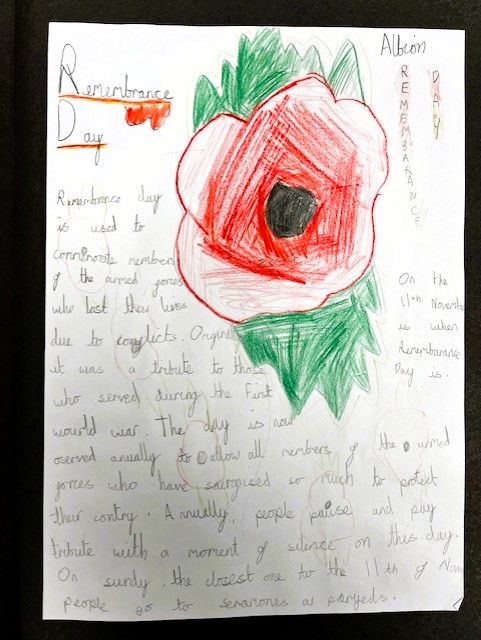 Remembrance
Day
Albion
REMEMBARANCE
DAY
Remembrance day
is used to
commorate members
of the armed forces
who lost their lives
due to conflicts. Origina
it was a tribute to those
who served during the First
would war. The day is now
oserved anually to allow all members of the armed
forces who have sacrgised so much to protect
their contry. Annually, people pause and pay
tribute with a moment of silence on this day.
On sundy, the closest one to the 11th of Nove
people go to seramones a paryeds.
On the
11th November
is when
Remembarance
Day is.